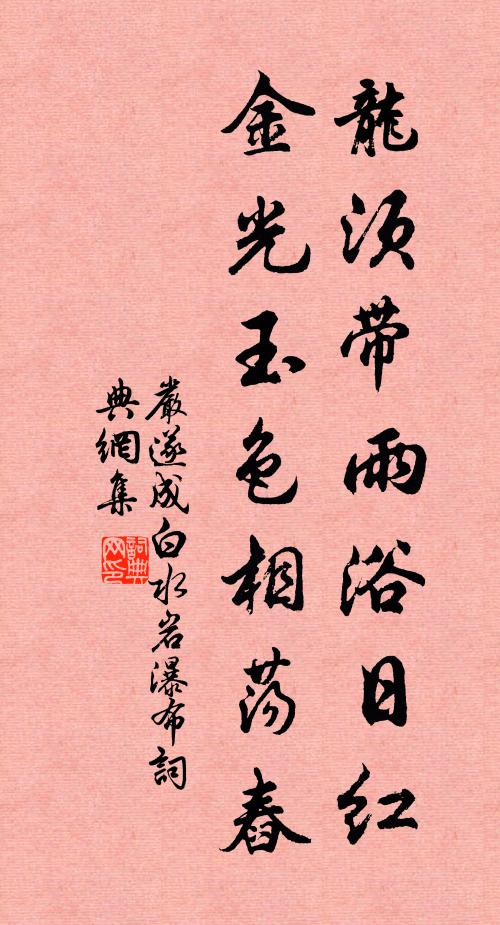 龍須带雨浴日紅
金光玉色相蕩舂
嚴遂成白水岩瀑布詞
典網集
詞典
网印